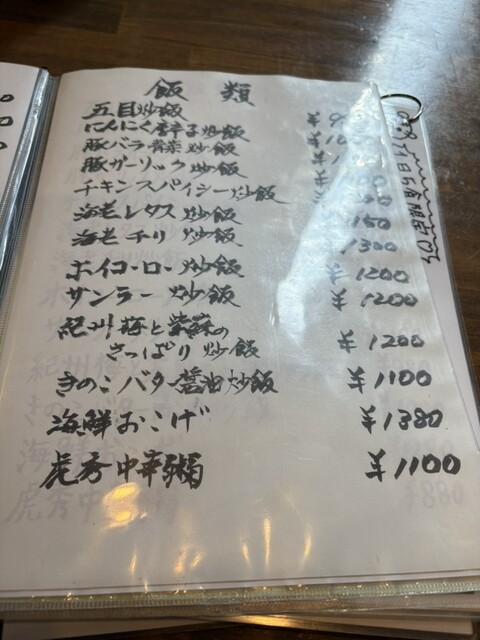 飯類
五目炒飯
にんにく唐辛子炒飯
豚バラ 炒飯
豚ガーリック 炒飯
チキンスパイシー炒飯
海老レタス 炒飯
海老チリ 炒飯 1300
ホイコーロー 炒飯 ¥1200
サンラー 炒飯 ¥1200
紀州梅と紫蘇の
さっぱり 炒飯 ¥1200
きのこバター醤油炒飯 ¥1100
海鮮おこげ ¥1380
虎秀中華粥 ¥1100